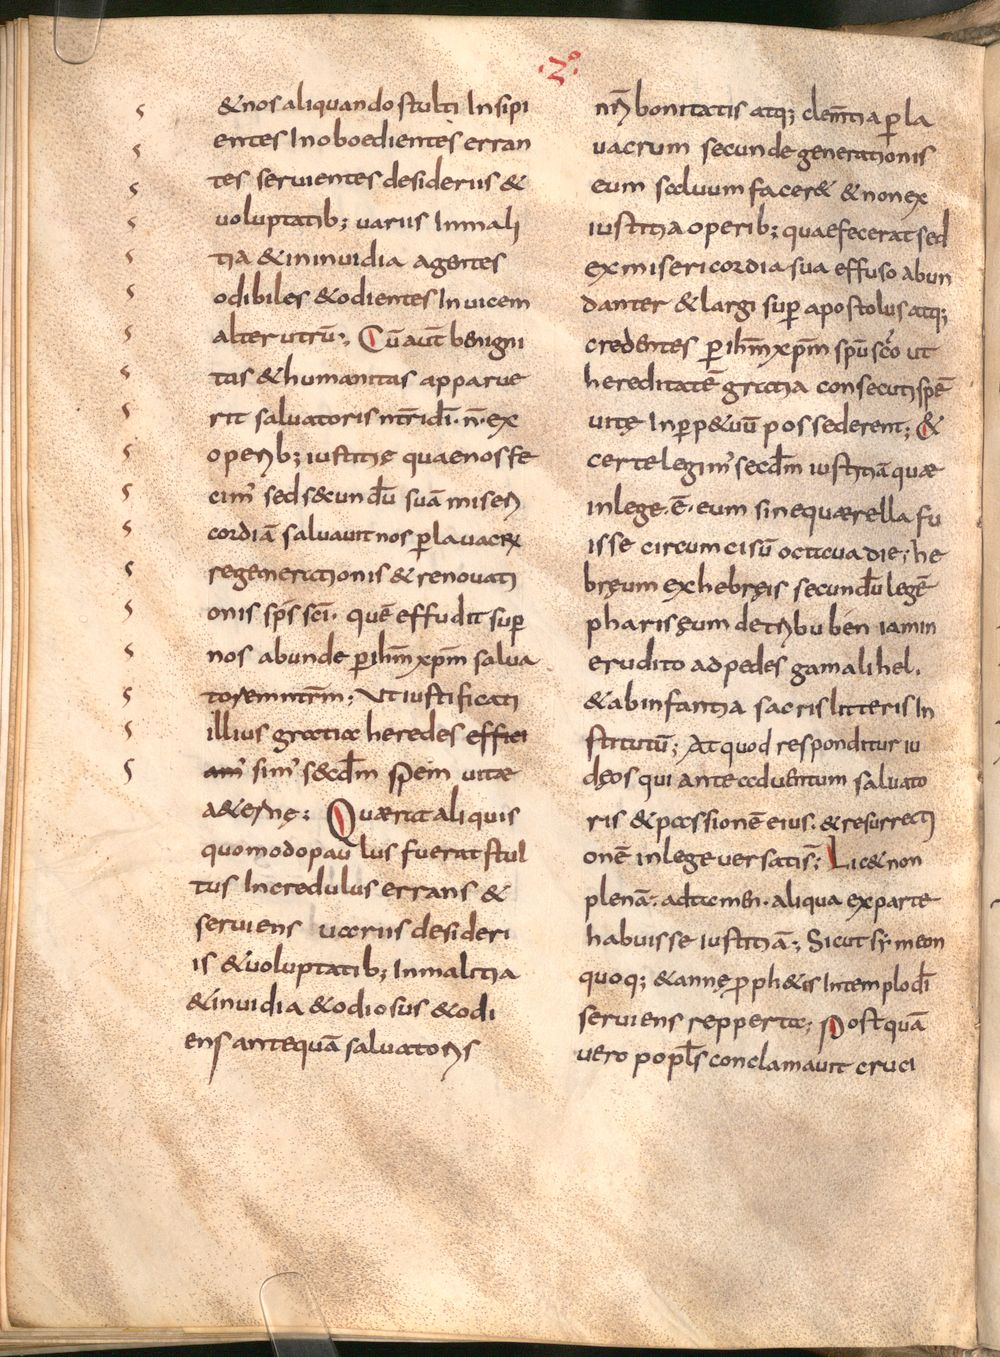 ·Z·
&nos aliquando stulti Insipi
entes Inoboedientes erran
tes seruientes desideriis &
uoluptatib; uariis Inmali
tia & ininuidia agentes
odibiles & odientes Inuicem
alterutrū·, Cū aut̄ benigni
tas & humanitas apparue
rit saluatoris nr̄i dī· n̄· ex
operib; iustitię quae nos fe
cim' sed s&cundū suā miseri
cordiā saluauit nos p̄ lauacrū
regenerationis & renouati
onis sp̄s sc̄i· quē effudit sup̄
nos abunde p̄ ihm̄ xp̄m salua
torem nr̄m; Ut iustificati
illius gratiae heredes effici
am' sim' s&cd̄m spem uitae
a&ernę; Quaerat aliquis
quomodo paulus fuerat stul
tus Incredulus errans &
seruiens uariis desideri
is & uoluptatib; Inmalitia
& inuidia & odiosus & odi
ens antequā saluatoris
nr̄i bonitatis atq; clem̄tia p̄ la
uacrum secunde generationis
eum saluum facer& & non ex
iustitia operib; quae fecerat sed
ex misericordia sua effuso abun
danter & largi sup̄ apostolus atq;
credentes p̄ ihm̄ xp̄m sp̄u sc̄o ut
hereditatē gratia consecuti spē
uitę Inp̄p&uū possederent; &
certe legim' secd̄m iustitiā quae
in lege· ē· eum sine quaerella fu
isse circumcisū octaua die; he
bręum ex hebręis secundū legē
pharisęum de tribu beniamin
erudito ad pedes gamalihel.
& ab infantia sacris litteris In
stitutū; At quod responditur iu
dęos qui ante aduentum saluato
ris & passionē eius. & resurrecti
onē in lege uersatis; Lic& non
plenā. attamen· aliqua ex parte
habuisse iustitiā·, Sicut symeon
quoq; & annę p̄ph&is Intemplo dī
seruiens repperta; postquā
uero popl̄s conclamauit cruci